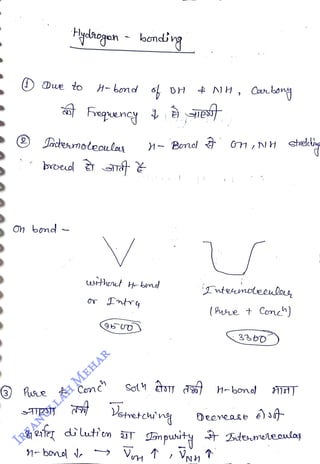 Hydrogan - bonding
① Due to H-bond of OH & NH, Carbony
की Frequency ↓ हो जाएगी
② Intermolecular H- Bond से OH, NH stretching
broad हो जाती है
OH bond -
without H-bond
or Intra
3600
Intermolecular
(Pure + Concⁿ)
3300
③ Pure & Concⁿ Solⁿ होगा तभी H-bond माना
जाएगा तभी ṽstretching Decrease होगी
अर्थात् dilution या Impurity से Intermolecular
H-bond ↓ → ṽOH ↑, ṽNH ↑
IRFANULLAH MEHAR